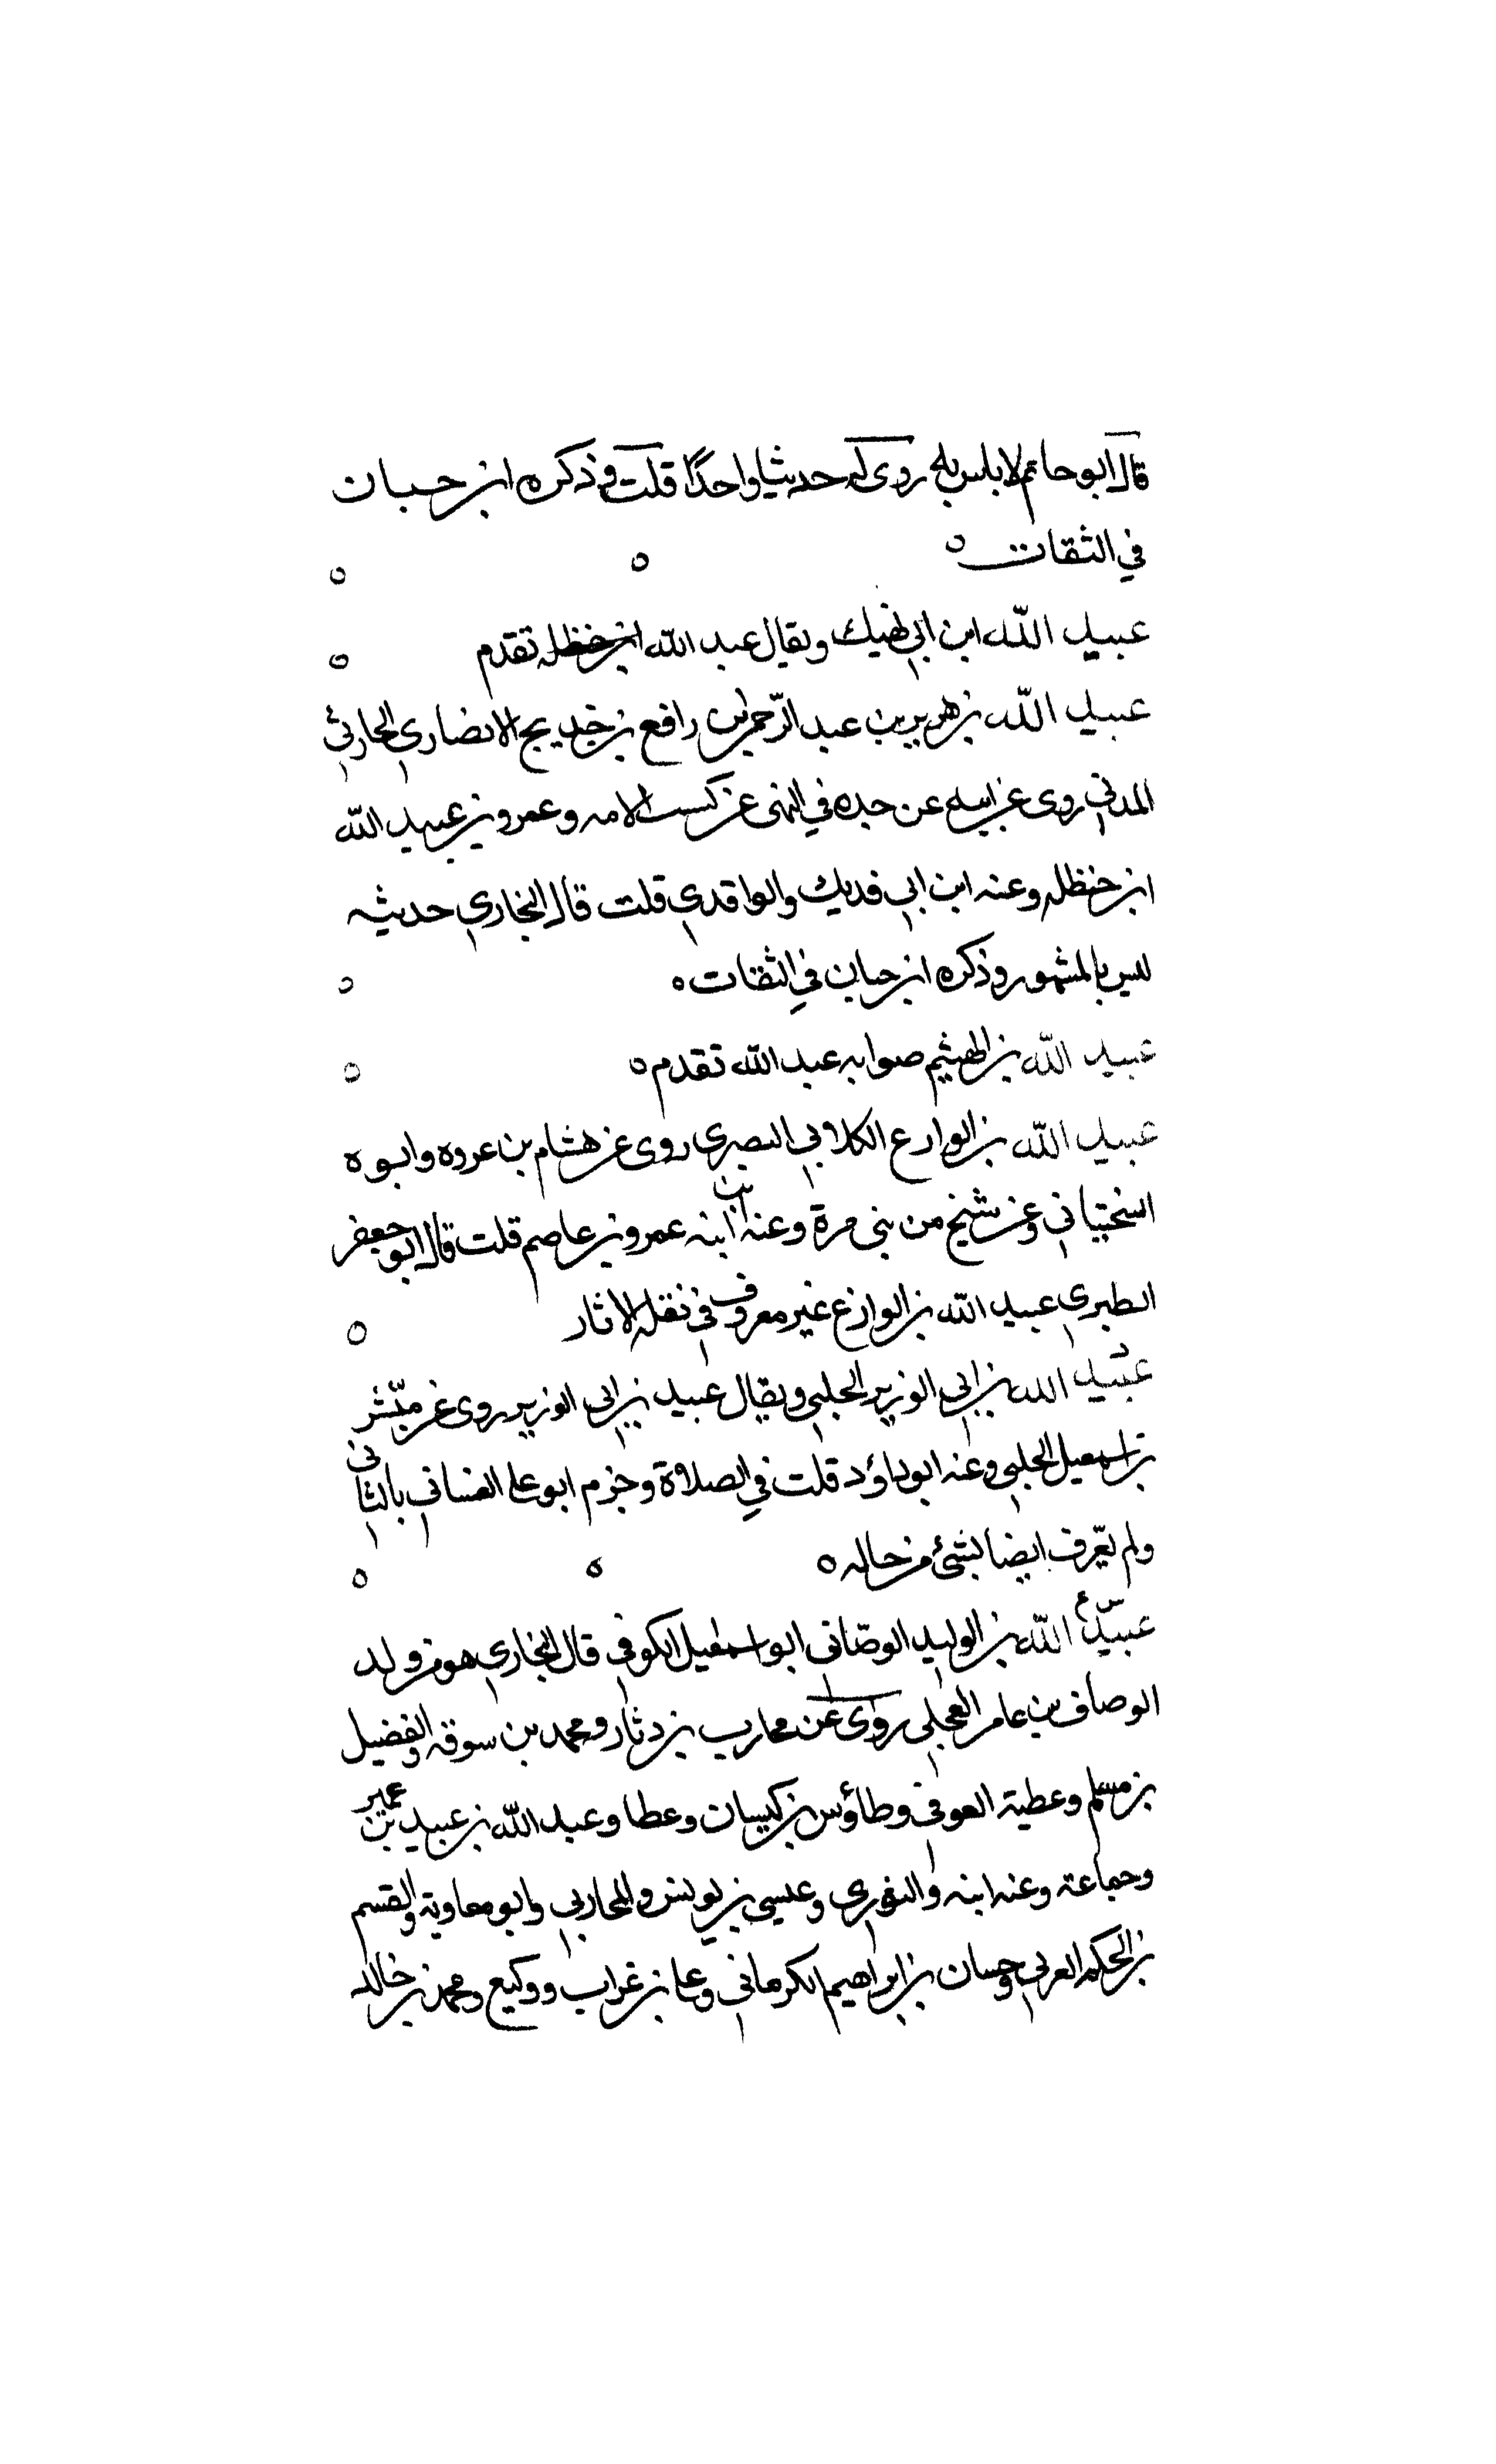 قال ابو حاتم لا باس به روى له حديثا واحدًا قلت وذكره ابن حبان
في الثقات ه
عبيد الله ابن ابي نهيك ويقال عبد الله ابن حنظله تقدم ه
عبيد الله بن هرير بن عبد الرحمن بن رافع بن خديج الانصاري الحارثي
المدني روى عن ابيه عن جده في النهي عن كسب الامه وعمرو بن عبيد الله
ابن حنظله وعنه ابن ابي فديك والواقدي قلت قال البخاري حديثه
ليس بالمشهور وذكره ابن حبان في الثقات ه
عبيد الله بن الهيثم صوابه عبد الله تقدم ه
عبيد الله بن الوازع الكلابي البصري روى عن هشام بن عروه وايوب
السختياني وعن شيخ من بني مرة وعنه ابن ابنه عمرو بن عاصم قلت قال ابو جعفر
الطبري عبيد الله بن الوازع غير معروف في نقله الاثار
د عبيد الله بن ابي الوزير الحلبي ويقال عبيد بن ابي الوزير روى عن مبشر
بن اسمعيل الحلبي وعنه ابو داؤد قلت في الصلاة وجزم ابو علي الغساني بالثاني
ولم يعرف ايضا بشئ من حاله ه
عبيد الله بن الوليد الوصّافي ابو اسمعيل الكوفي قال البخاري هو من ولد
الوصاف بن عامر العجلي روى عن محارب بن دثار ومحمد بن سوقه والفضيل
بن مسلم وعطية العوفي وطاؤس بن كيسان وعطا وعبد الله بن عبيد بن عمير
وجماعة وعنه ابنه والثوري وعيسى بن يونس والمحاربي وابو معاوية والقسم
بن الحكم العرني وحسان بن ابراهيم الكرماني وعلي بن غراب ووكيع ومحمد بن خالد